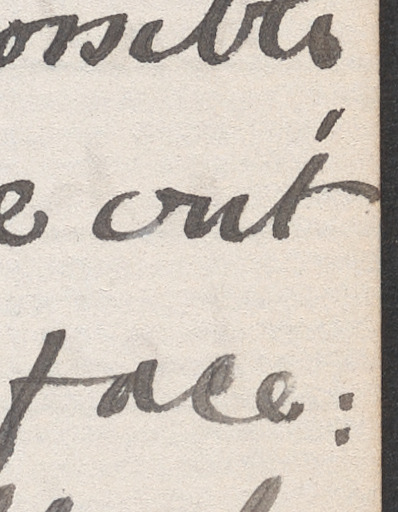 ossible
e out
face: